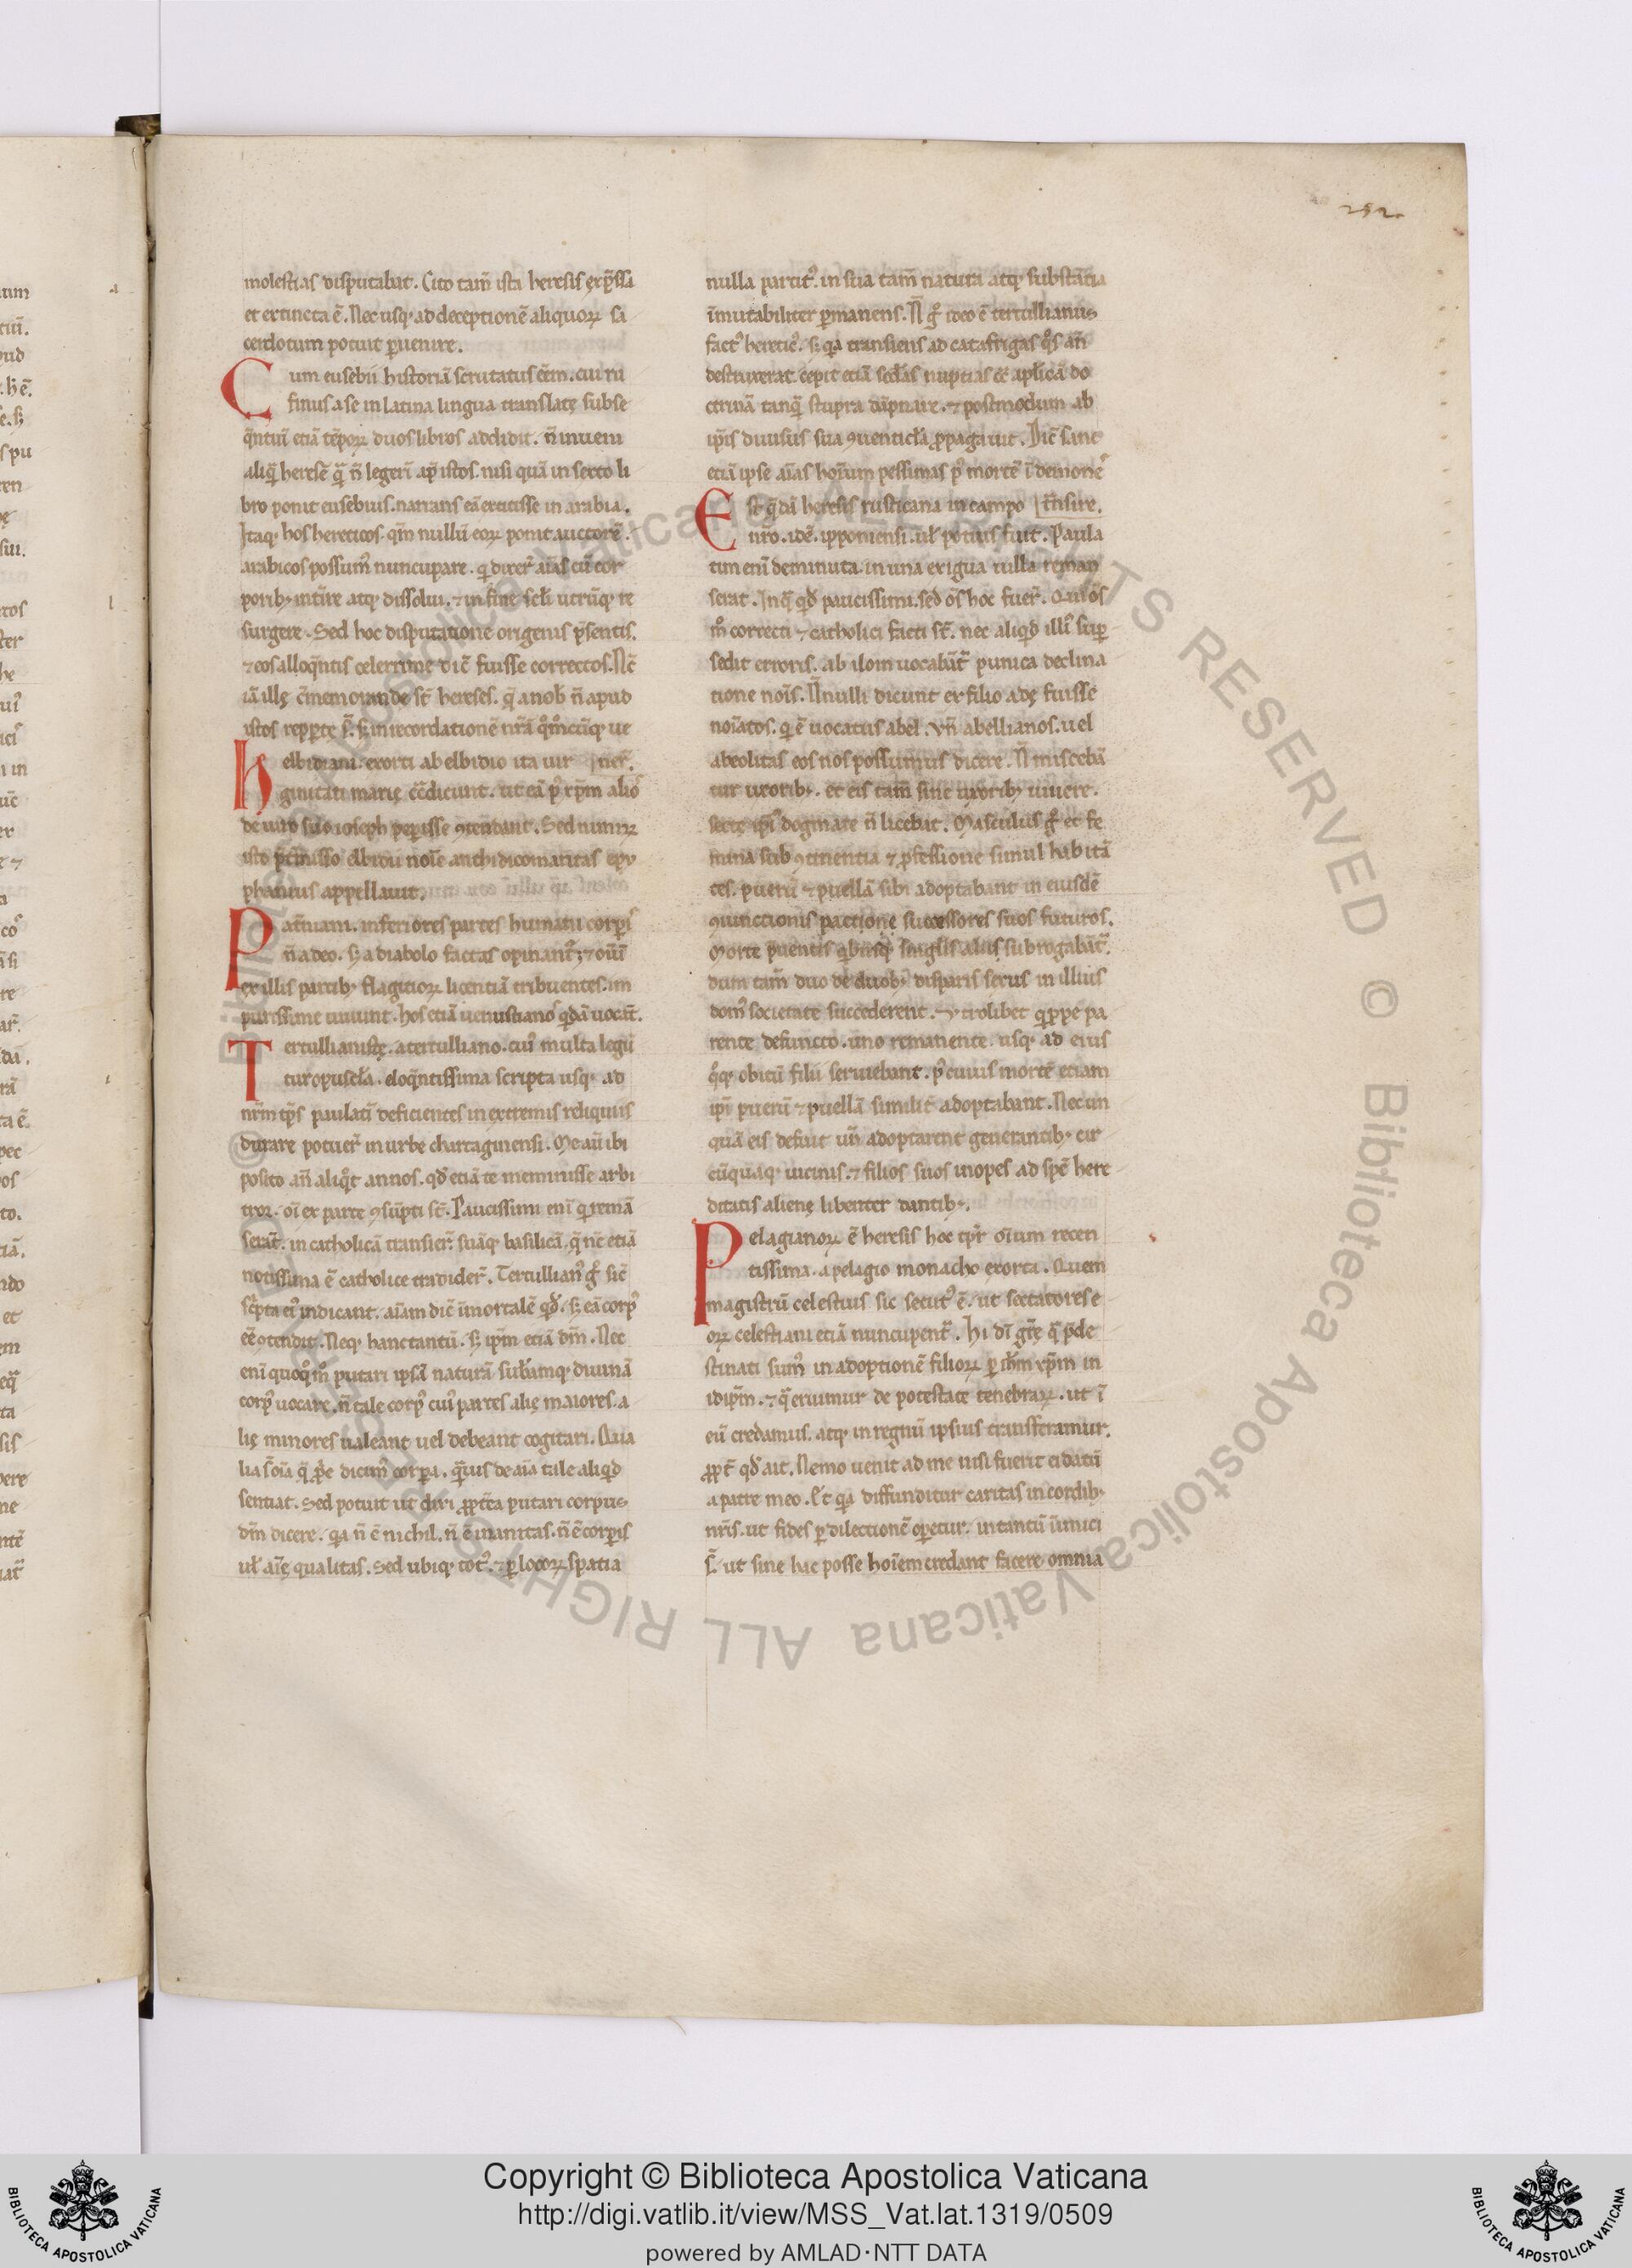 252
molestias disputabat. Cito tam̄ ista heresis exp̄ssa
et extincta ē. Nec usq; ad deceptionē aliquoꝝ sa
cerdotum potuit ꝑuenire.
Cum eusebii historiā scrutatus eēm. cui ru
finus a se in latina lingua translatę subse
q̄ntiū etiā tēpoꝝ duos libros addidit. n̄ inueni
aliq̄ heresē q̄ n̄ legerī ap̄ istos. nisi quā in sexto li
bro ponit eusebius. narrans eā extitisse in arabia.
Itaq; hos hereticos. qm̄ nullū eoꝝ ponit auctorē.
arabicos possum᷒ nuncupare. qi dixer̄ aīas cū cor
porib; intīre atq; dissolui. ⁊ in fine scłi utrūq; re
surgere. Sed hoc disputatione origenis p̄sentis.
⁊ eos alloq̄ntis celerrime dic̄ fuisse correctos. Nc̄
iā illę c̄memorande st̄ hereses. q̄ a nob̄ n̄ apud
istos repperte s̄. sꝫ in recordationē nr̄ā qͦmcūq; ue
helbidiani. exorti ab elbidio ita uir | ner̄.
ginitati marię c̄dicunt. ut eā p᷒ xp̄m alio᷒
de uiro suo ioseph peperisse ꝯtendant. Sed nimiꝝ
isto p̄termisso elbidii noīe antidicomaritas epy
phanius appellauit.
Pat̄niani. inferiores partes humani corp̄i᷒
n̄ a deo. sꝫ a diabolo factas opinant᷑. ⁊ oīuī
ex illis partib; flagitioꝝ licentiā tribuentes. im
purissime uiuunt. hos etiā uenustiano᷒ qͥdā uocāt.
Tertullianistę. a tertulliano. cui᷒ multa legū
tur opuscła. eloq̄ntissima scripta usq; ad
nr̄m tp̄s paulatī deficientes in extremis reliquiis
durare potuer̄ in urbe chartaginensi. Me aū ibi
posito an̄ aliqͦt annos. qd̄ etiā te meminisse arbi
tror. oī ex parte ꝯsūpti st̄. Paucissimi enī qi remā
serāt. in catholicā transier̄. suāq; basilicā. q̄ nc̄ etiā
notissima ē catholice tradider̄. Tertullian᷒ gͦ sic̄
sc̄pta ei᷒ indicant. aīam dic̄ īmortalē qd̄. sꝫ eā corp᷒
eē ꝯtendit. Neq; hanc tantū. sꝫ ipm̄ etiā dm̄. Nec
enī quoqͦmͦ putari ipsā naturā sublimq; diuinā
corp᷒ uocare. n̄ tale corp᷒ cui᷒ partes alię maiores. a
lię minores ualeant uel debeant cogitari. Qua
lia s̄ oīa q̄ ꝓprie dicim᷒ corpora. q̄uis de aīa tale aliqͥd
sentiat. Sed potuit ut dixi ꝓpt̄ea putari corpus
dm̄ dicere. qa n̄ ē nichil. n̄ ē inanitas. n̄ ē corpis
uł aīę qualitas. Sed ubiq; tot᷒. ⁊ ꝑ locoꝝ spatia
nulla partit᷒. in sua tam̄ natura atq; substantia
īmutabiliter ꝑmanens. N̄ gͦ ideo ē tertullianus
fact᷒ heretic᷒. sꝫ qa transiens ad catafrigas qͦs an̄
destruxerat. cepit etiā secdās nuptias cͣ aplicā do
ctrinā tanq̄ stupra dāpnare. ⁊ postmodum ab
ipis diuisus sua ꝯuenticła ꝓpagauit. Dic̄ sane
etiā ipse aīas hoīum pessimas p᷒ mortē ī demone᷒
Est q̄dā heresis rusticana in campo | t̄nsire.
nr̄o. idē. ipponiensi. uł potius fuit. Paula
tim enī deminuta. in una exigua uilla reman
serat. Inq̄ qd̄ paucissimi. sed ōs hoc fuer̄. Qui ōs
mͦ correcti ⁊ catholici facti st̄. nec aliqͥd illi᷒ sup̄
sedit erroris. abilom uocabāt᷑ punica declina
tione noīs. Nōnulli dicunt ex filio adę fuisse
noīatos. qi ē uocatus abel. Vn̄ abellianos. uel
abeolitas eos nos possumus dicere. N̄ miscebā
tur uxorib;. et eis tam̄ sine uxorib; uiuere.
secte ipi᷒ dogmate n̄ licebat. Masculus gͦ et fe
mina sub ꝯtinentię ⁊ ꝓfessione simul habitā
tes. puerū ⁊ puellā sibi adoptabant in eiusdē
ꝯiunctionis pactione successores suos futuros.
Morte p̄uentis qͥbusq; singlis alius subrogabāt᷑.
dum tam̄ duo de duob; disparis sexus in illius
dom᷒ societate succederent. Vtrolibet qͥppe pa
rente defuncto. uno remanente. usq; ad eius
qͦq; obitū filii seruiebant. p᷒ cuius mortē etiam
ipi puerū ⁊ puellā similit̄ adoptabant. Nec un
quā eis defuit un̄ adoptarent generantib; cir
cūquaq; uicinis. ⁊ filios suos inopes ad spē here
ditatis alienę libenter dantib;.
Pelagianoꝝ ē heresis hoc tp̄r oīum recen
tissima. a pelagio monacho exorta. Quem
magistrū celestius sic secut᷒ ē. ut sectatores e
oꝝ celestiani etiā nuncupent᷑. Hi dī gr̄ę qͣ p̄de
stinati sum᷒ in adoptionē filioꝝ ꝑ ihm̄ xp̄m in
idipm̄. ⁊ qͣ eruimur de potestate tenebraꝝ. ut ī
eū credamus. atq; in regnū ipsius transferamur.
ꝓpt̄ qd̄ ait. Nemo uenit ad me nisi fuerit ei datū
a patre meo. Et qa diffunditur caritas in cordib;
nr̄is. ut fides ꝑ dilectionē opetur. in tantū inimici
s̄. ut sine hac posse hoīem credant facere omnia
Copyright © Biblioteca Apostolica Vaticana
http://digi.vatlib.it/view/MSS_Vat.lat.1319/0509
powered by AMLAD·NTT DATA
BIBLIOTECA APOSTOLICA VATICANA
BIBLIOTECA APOSTOLICA VATICANA